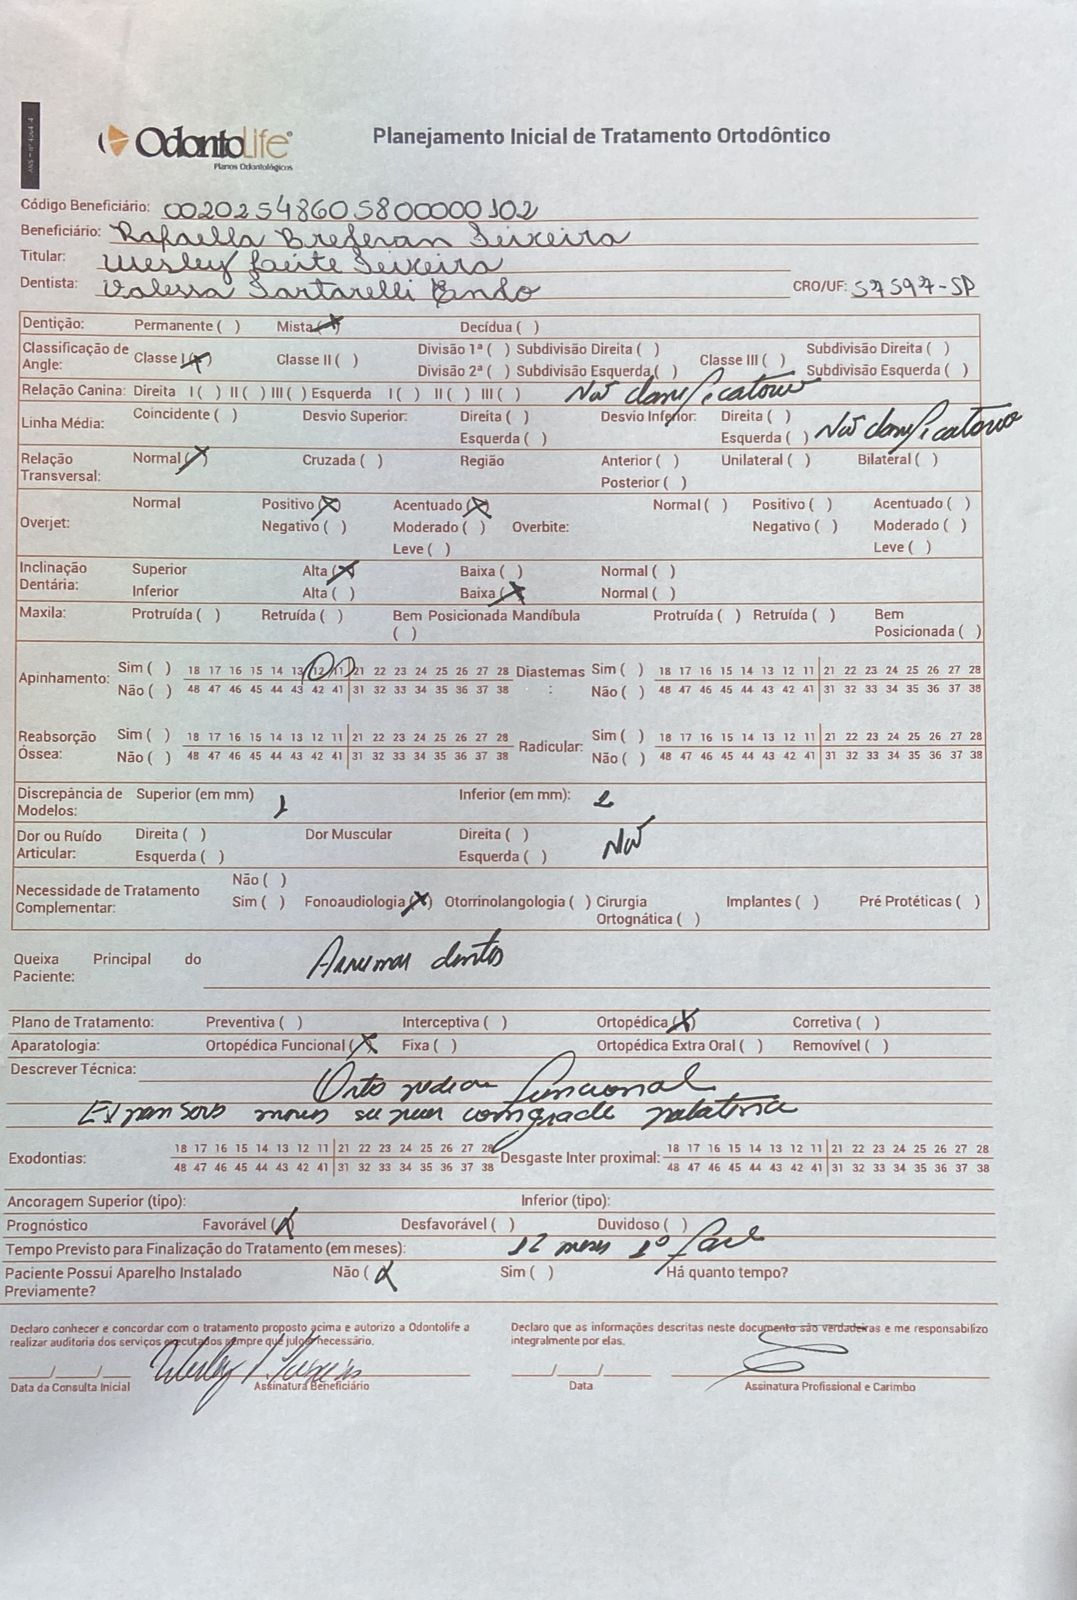 ANS - Nº
OdontoLife®
Planos Odontológicos
Planejamento Inicial de Tratamento Ortodôntico
Código Beneficiário: 00202548605800000102
Beneficiário: Rafaella Brederan Teixeira
Titular: Wesley Leite Teixeira
Dentista: Valessa Sartarelli Endo CRO/UF: 57597-SP
Dentição: Permanente ( ) Mista (X) Decídua ( )
Classificação de Angle: Classe I (X) Classe II ( ) Divisão 1ª ( ) Subdivisão Direita ( ) Classe III ( ) Subdivisão Direita ( )
Divisão 2ª ( ) Subdivisão Esquerda ( ) Subdivisão Esquerda ( )
Relação Canina: Direita I ( ) II ( ) III ( ) Esquerda I ( ) II ( ) III ( )
Linha Média: Coincidente ( ) Desvio Superior: Direita ( ) Desvio Inferior: Direita ( )
Esquerda ( ) Esquerda ( )
Relação Transversal: Normal (X) Cruzada ( ) Região Anterior ( ) Unilateral ( ) Bilateral ( )
Posterior ( )
Overjet: Normal Positivo (X) Acentuado (X) Overbite: Normal ( ) Positivo ( ) Acentuado ( )
Negativo ( ) Moderado ( ) Negativo ( ) Moderado ( )
Leve ( ) Leve ( )
Inclinação Dentária: Superior Alta (X) Baixa ( ) Normal ( )
Inferior Alta ( ) Baixa (X) Normal ( )
Maxila: Protruída ( ) Retruída ( ) Bem Posicionada ( ) Mandíbula Protruída ( ) Retruída ( ) Bem Posicionada ( )
Apinhamento: Sim ( ) 18 17 16 15 14 13 12 11 21 22 23 24 25 26 27 28 Diastemas : Sim ( ) 18 17 16 15 14 13 12 11 21 22 23 24 25 26 27 28
Não ( ) 48 47 46 45 44 43 42 41 31 32 33 34 35 36 37 38 Não ( ) 48 47 46 45 44 43 42 41 31 32 33 34 35 36 37 38
Reabsorção Óssea: Sim ( ) 18 17 16 15 14 13 12 11 21 22 23 24 25 26 27 28 Radicular: Sim ( ) 18 17 16 15 14 13 12 11 21 22 23 24 25 26 27 28
Não ( ) 48 47 46 45 44 43 42 41 31 32 33 34 35 36 37 38 Não ( ) 48 47 46 45 44 43 42 41 31 32 33 34 35 36 37 38
Discrepância de Modelos: Superior (em mm) 1 Inferior (em mm): 2
Dor ou Ruído Articular: Direita ( ) Dor Muscular Direita ( )
Esquerda ( ) Esquerda ( )
Necessidade de Tratamento Complementar: Não ( )
Sim ( ) Fonoaudiologia (X) Otorrinolangologia ( ) Cirurgia Ortognática ( ) Implantes ( ) Pré Protéticas ( )
Queixa Principal do Paciente: Arrumar dentes
Plano de Tratamento: Preventiva ( ) Interceptiva ( ) Ortopédica (X) Corretiva ( )
Aparatologia: Ortopédica Funcional (X) Fixa ( ) Ortopédica Extra Oral ( ) Removível ( )
Descrever Técnica: Ortopedia funcional
grade palatina
Exodontias: 18 17 16 15 14 13 12 11 21 22 23 24 25 26 27 28 Desgaste Inter proximal: 18 17 16 15 14 13 12 11 21 22 23 24 25 26 27 28
48 47 46 45 44 43 42 41 31 32 33 34 35 36 37 38 48 47 46 45 44 43 42 41 31 32 33 34 35 36 37 38
Ancoragem Superior (tipo): Inferior (tipo):
Prognóstico Favorável (X) Desfavorável ( ) Duvidoso ( )
Tempo Previsto para Finalização do Tratamento (em meses): 12 meses 1ª fase
Paciente Possui Aparelho Instalado Previamente? Não (X) Sim ( ) Há quanto tempo?
Declaro conhecer e concordar com o tratamento proposto acima e autorizo a Odontolife a
realizar auditoria dos serviços executados sempre que julgar necessário.
Declaro que as informações descritas neste documento são verdadeiras e me responsabilizo
integralmente por elas.
__/__/__ __/__/__
Data da Consulta Inicial Assinatura Beneficiário Data Assinatura Profissional e Carimbo